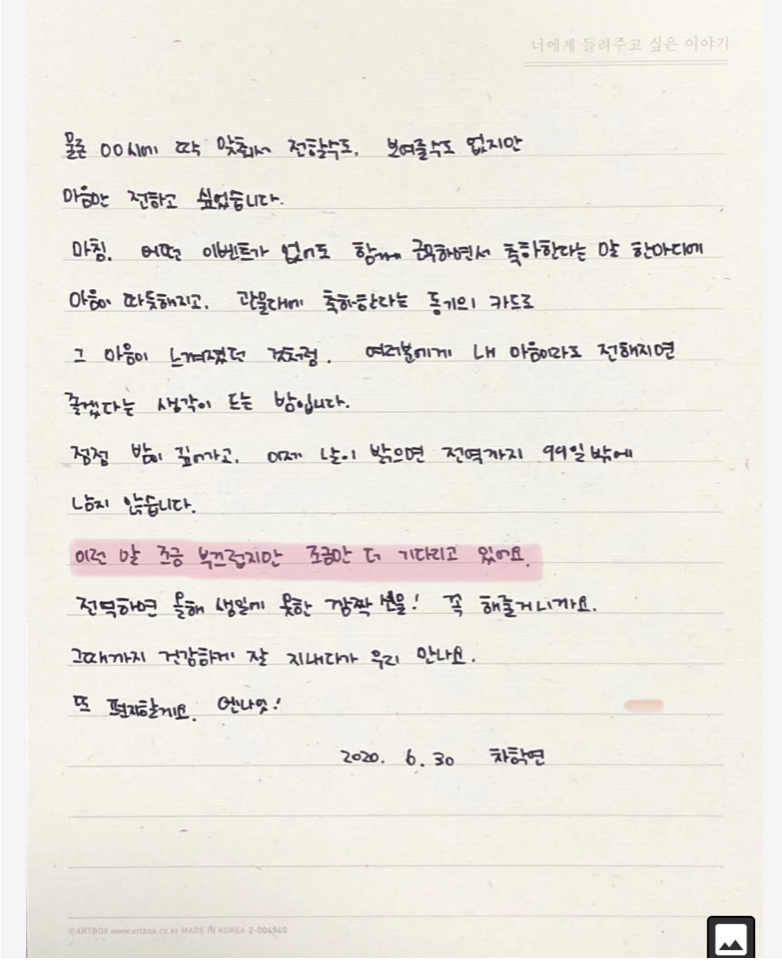 너에게 들려주고 싶은 이야기
물론 00시에 딱 맞춰서 전할수도, 보여줄수도 없지만
마음만 전하고 싶었습니다.
마침, 어떤 이벤트가 없어도 함께 근무하면서 축하한다는 말 한마디에
마음이 따듯해지고, 관물대에 축하한다는 동기의 카드로
그 마음이 느껴졌던 것처럼, 여러분에게 내 마음이라도 전해지면
좋겠다는 생각이 드는 밤입니다.
점점 밤이 깊어가고, 이제 날이 밝으면 전역까지 99일밖에
남지 않습니다.
이런 말 조금 부끄럽지만 조금만 더 기다리고 있어요.
전역하면 올해 생일에 못한 깜짝 선물! 꼭 해줄거니까요.
그때까지 건강하게 잘 지내다가 우리 만나요.
또 편지할게요. 엔나잇!
2020. 6. 30 차학연
©ARTBOX www.artbox.co.kr MADE IN KOREA